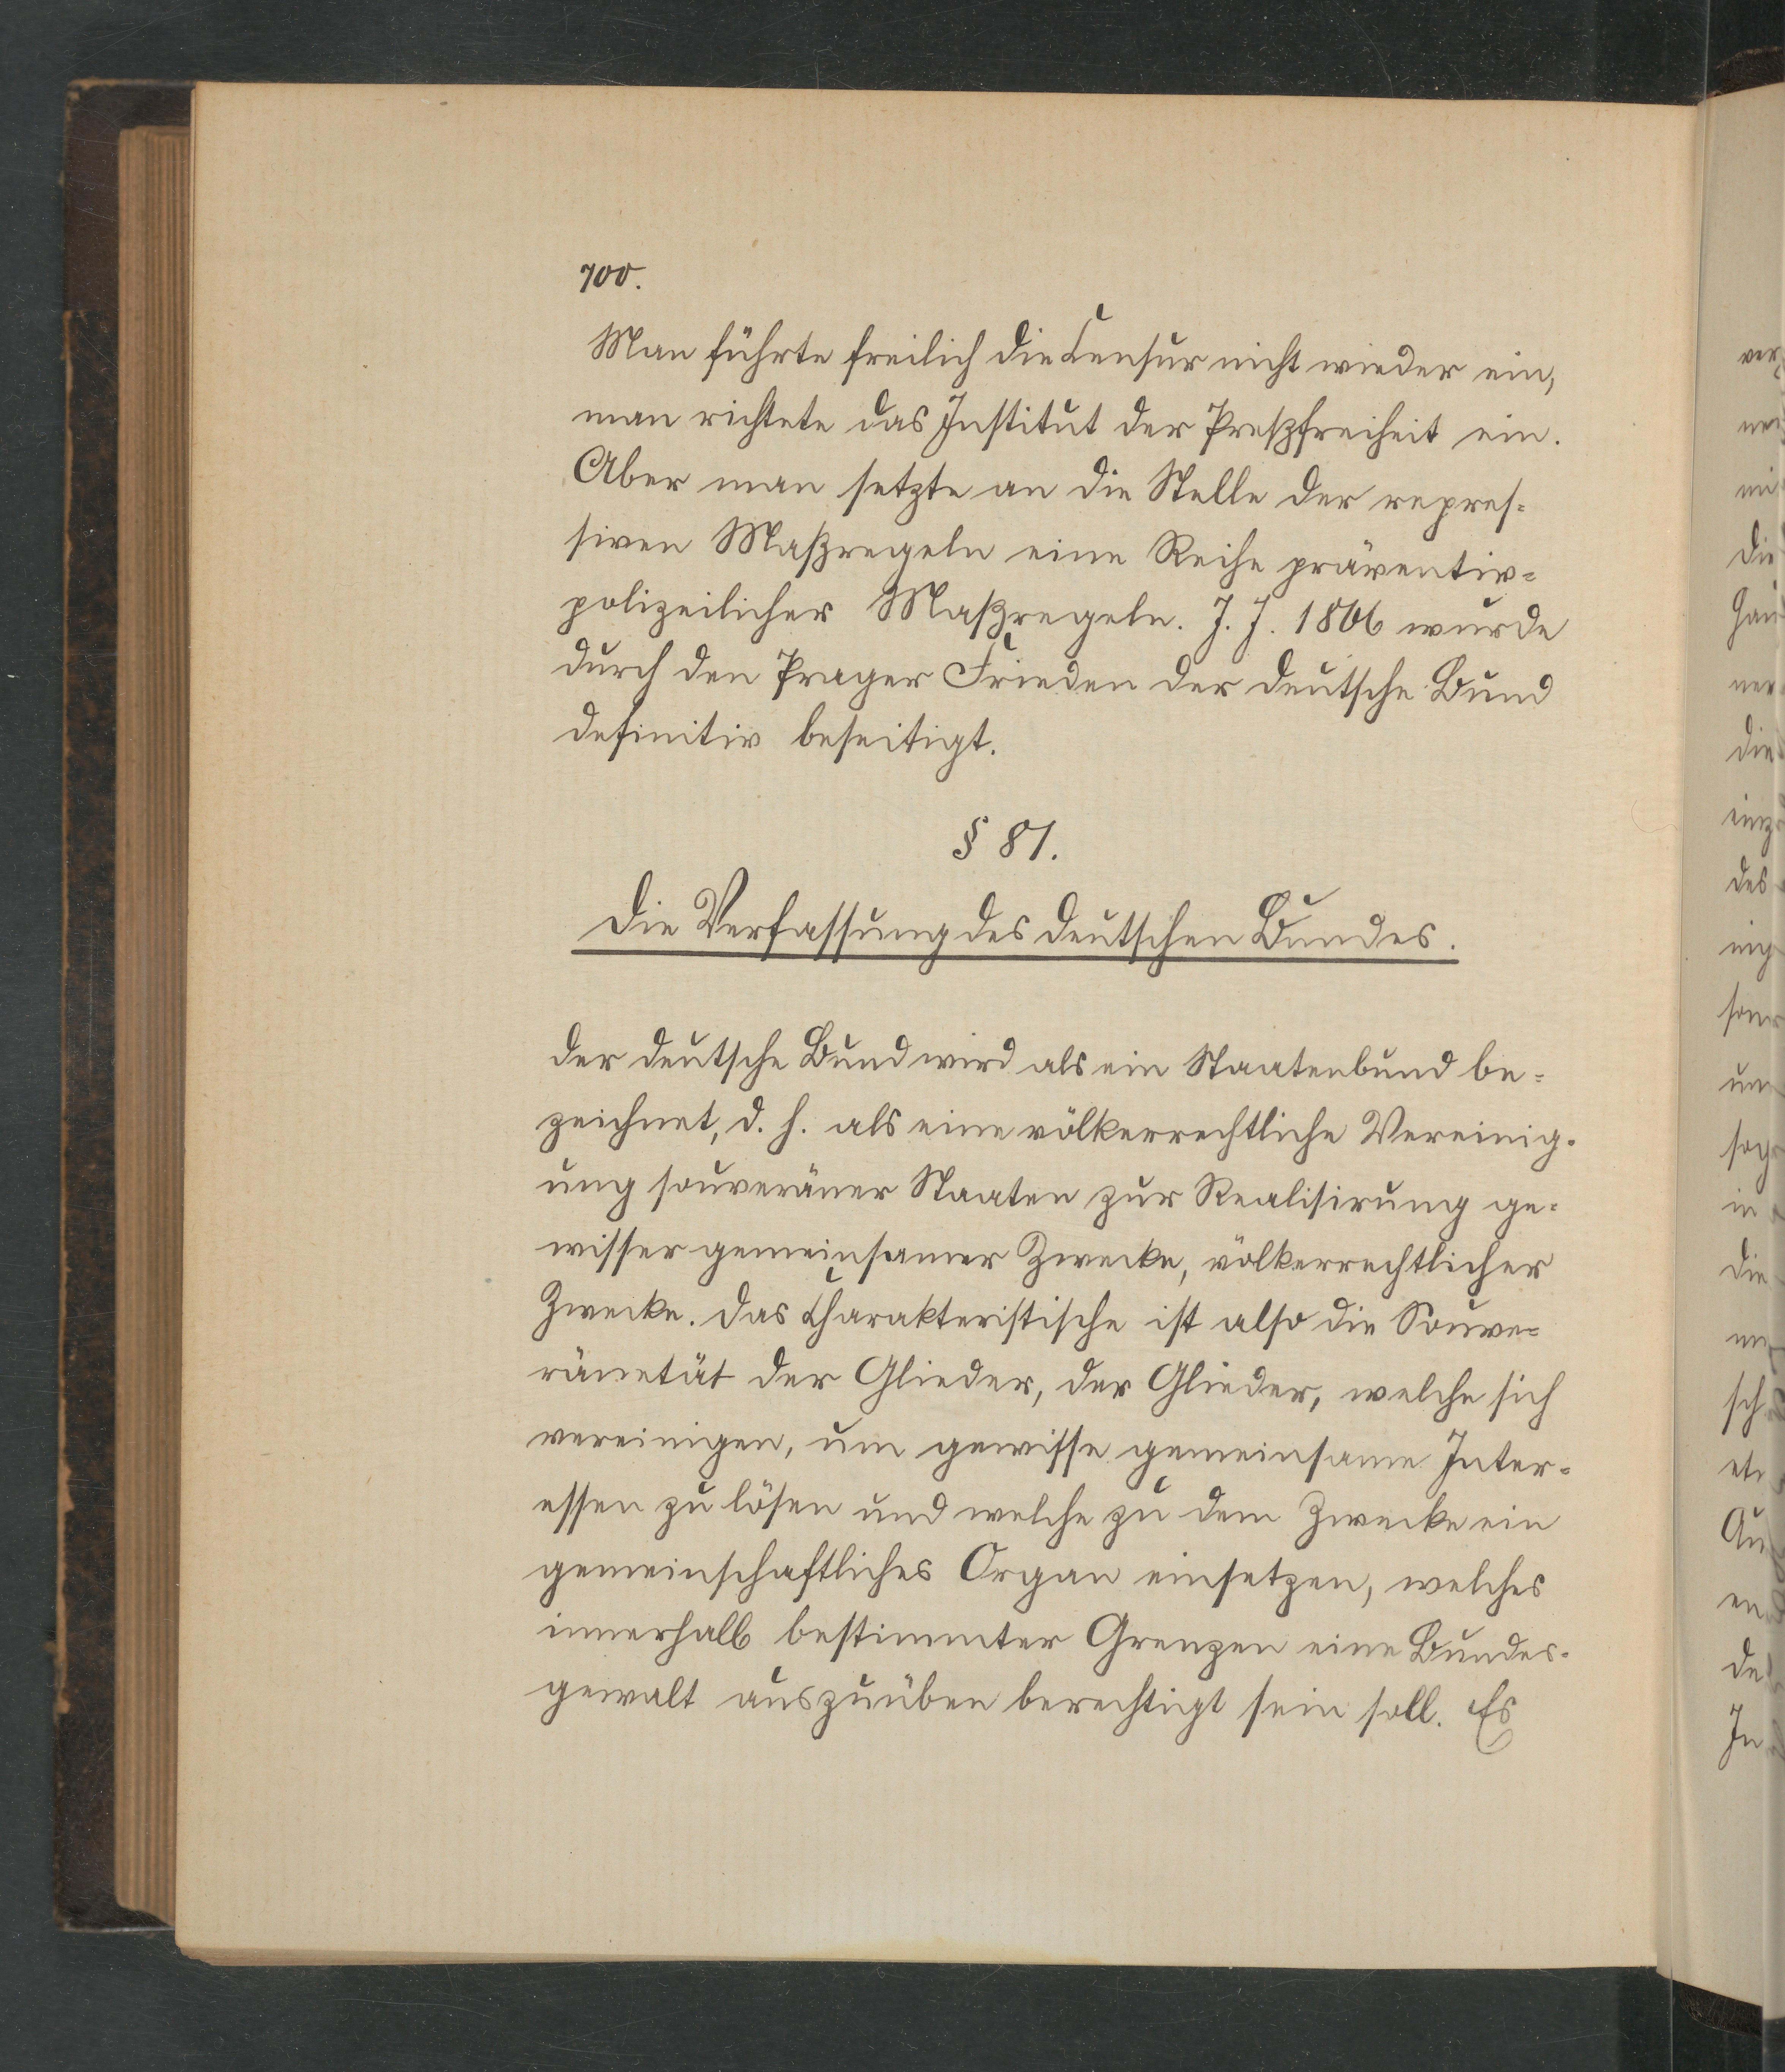 700.
Man führte freilich die Censur nicht wieder ein,
man richtete das Institut der Preßfreiheit ein.
Aber man setzte an die Stelle der repres-
siven Maßregeln eine Reihe präventiv-
polizeilicher Maßregeln. J. J. 1866 wurde
durch den Prager Frieden der deutsche Bund
definitiv beseitigt.
§ 81.
Die Verfassung des deutschen Bundes.
Der deutsche Bund wird als ein Staatenbund be-
zeichnet, d. h. als eine völkerrechtliche Vereinig-
ung souveräner Staaten zur Realisirung ge-
wisser gemeinsamer Zwecke, völkerrechtlicher
Zwecke. Das Charakteristische ist also die Souve-
ränetät der Glieder, der Glieder, welche sich
vereinigen, um gewisse gemeinsame Inter-
essen zu lösen und welche zu dem Zwecke ein
gemeinschaftliches Organ einsetzen, welches
innerhalb bestimmter Grenzen eine Bundes-
gewalt auszuüben berechtigt sein soll. Es